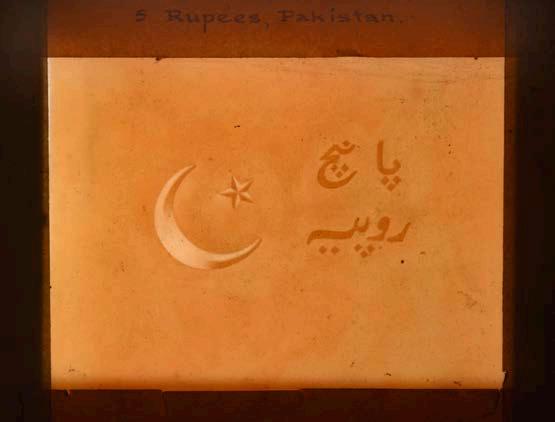 5 Rupees, Pakistan.
پانچ
روپیہ